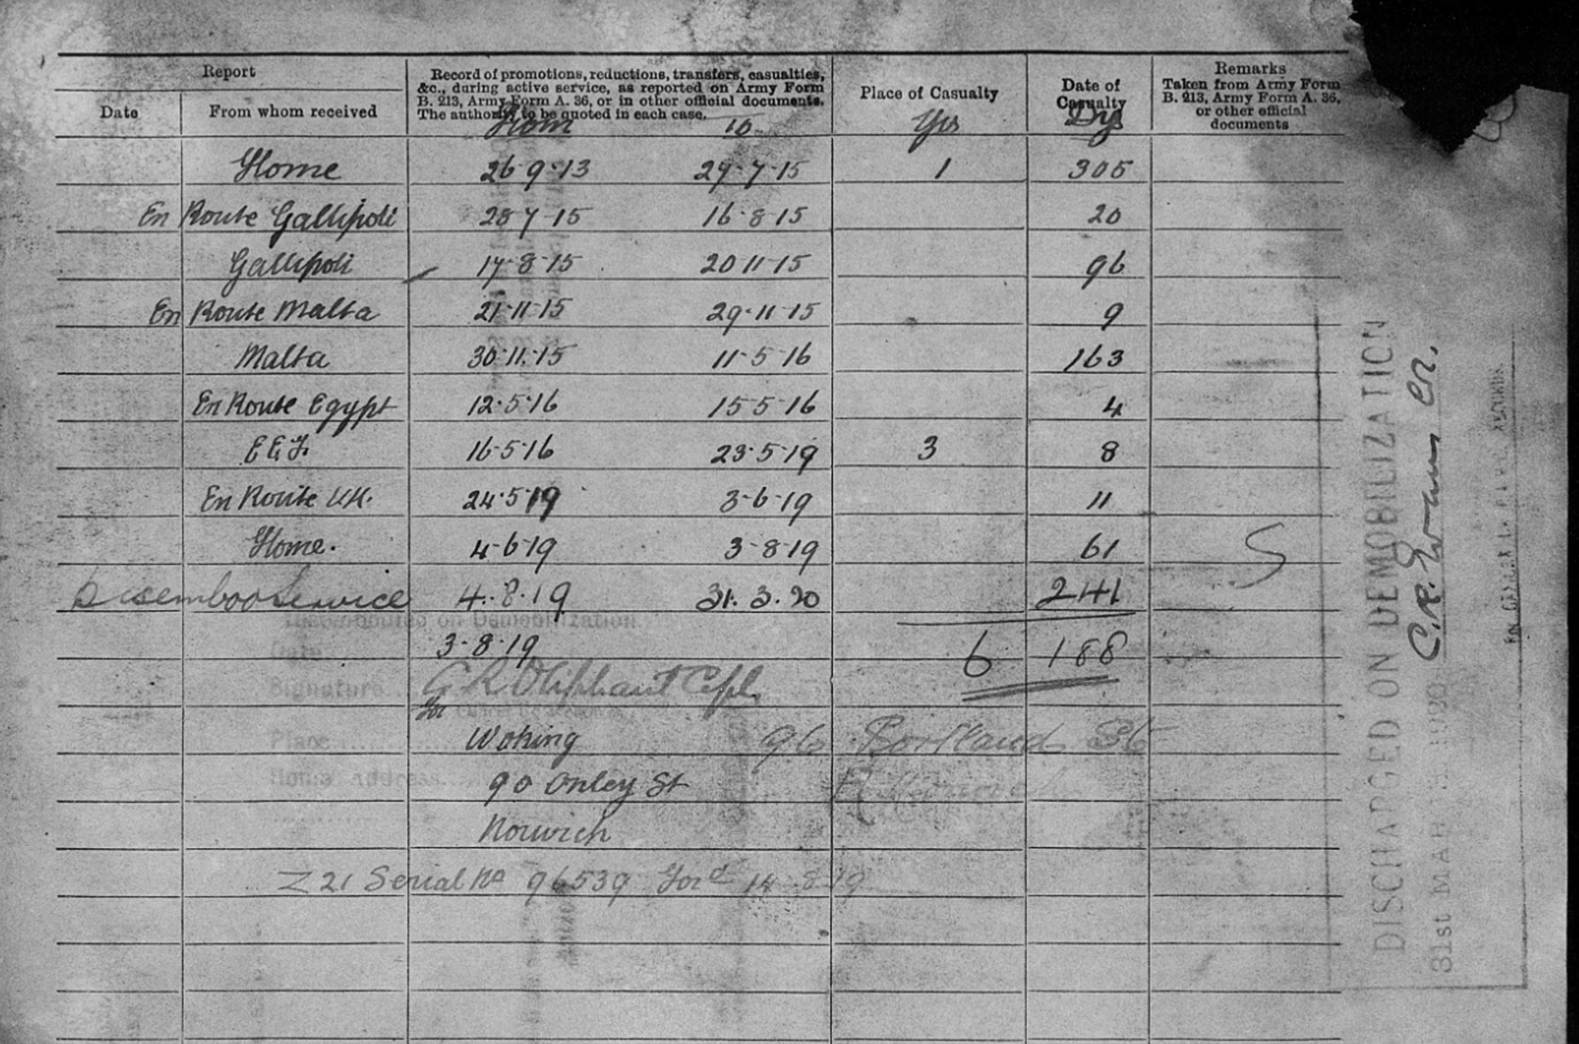 Report
Date
From whom received
Record of promotions, reductions, transfers, casualties, &c., during active service, as reported on Army Form B. 213, Army Form A. 36, or in other official documents. The authority to be quoted in each case.
Place of Casualty
Date of Casualty
Remarks
Taken from Army Form B. 213, Army Form A. 36, or other official documents
From to Yrs Dys
Home 26·9·13 29·7·15 1 305
En Route Gallipoli 28 7 15 16·8 15 20
Gallipoli 17·8·15 20 11·15 96
En Route Malta 21·11·15 29·11·15 9
Malta 30·11·15 11·5·16 163
En Route Egypt 12·5·16 15 5·16 4
E E F. 16·5·16 23·5·19 3 8
En Route UK. 24·5·19 3·6·19 11
Home. 4·6·19 3·8·19 61
Disembod Service 4·8·19 31. 3. 20 241
3·8·19 6 188
G R Oliphant Cpl.
for
Woking 96 Portland St
90 Onley St
Norwich
Z 21 Serial No 96539 Ford 14 8 19
Date
Signature
Place
Home Address
DISCHARGED ON DEMOBILIZATION
31st MAR 1920